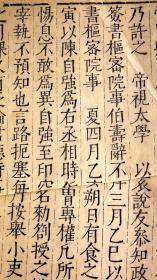 乃許之　帝視太學　以袁說友參知政
簽書樞密院事伯壽辭不　三月乙巳以
書樞密院事　夏四月乙　朔日有食之
寅以陳自強為右丞相時　冑專權凡所
惕息不敢為異自強至印空名勑劄授之
宰執不預知也言路扼塞每按舉小吏